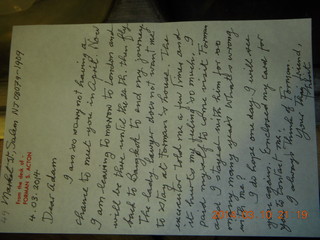 From the desk of
FORMAN S. ACTON
Market St. Salem NJ 08079-1909
4.03.2014
Dear Adam
I am so sorry not having a
chance to meet you in April. Now
I am leaving tomorrow to London and
will be there until the 26th, then fly
back to Bangkok to end my journey
The lady lawyer does not want me
to stay at Forman's house. The
executor told me a few times and
it hurts my feeling so much. I
paid myself to come visit Forman
and I stayed with him for so
many many years. What's wrong
with me?
I do hope one day I will see
you again. Enclosed my card for
you to contact me.
I always think of Forman.
Your Thai friend,